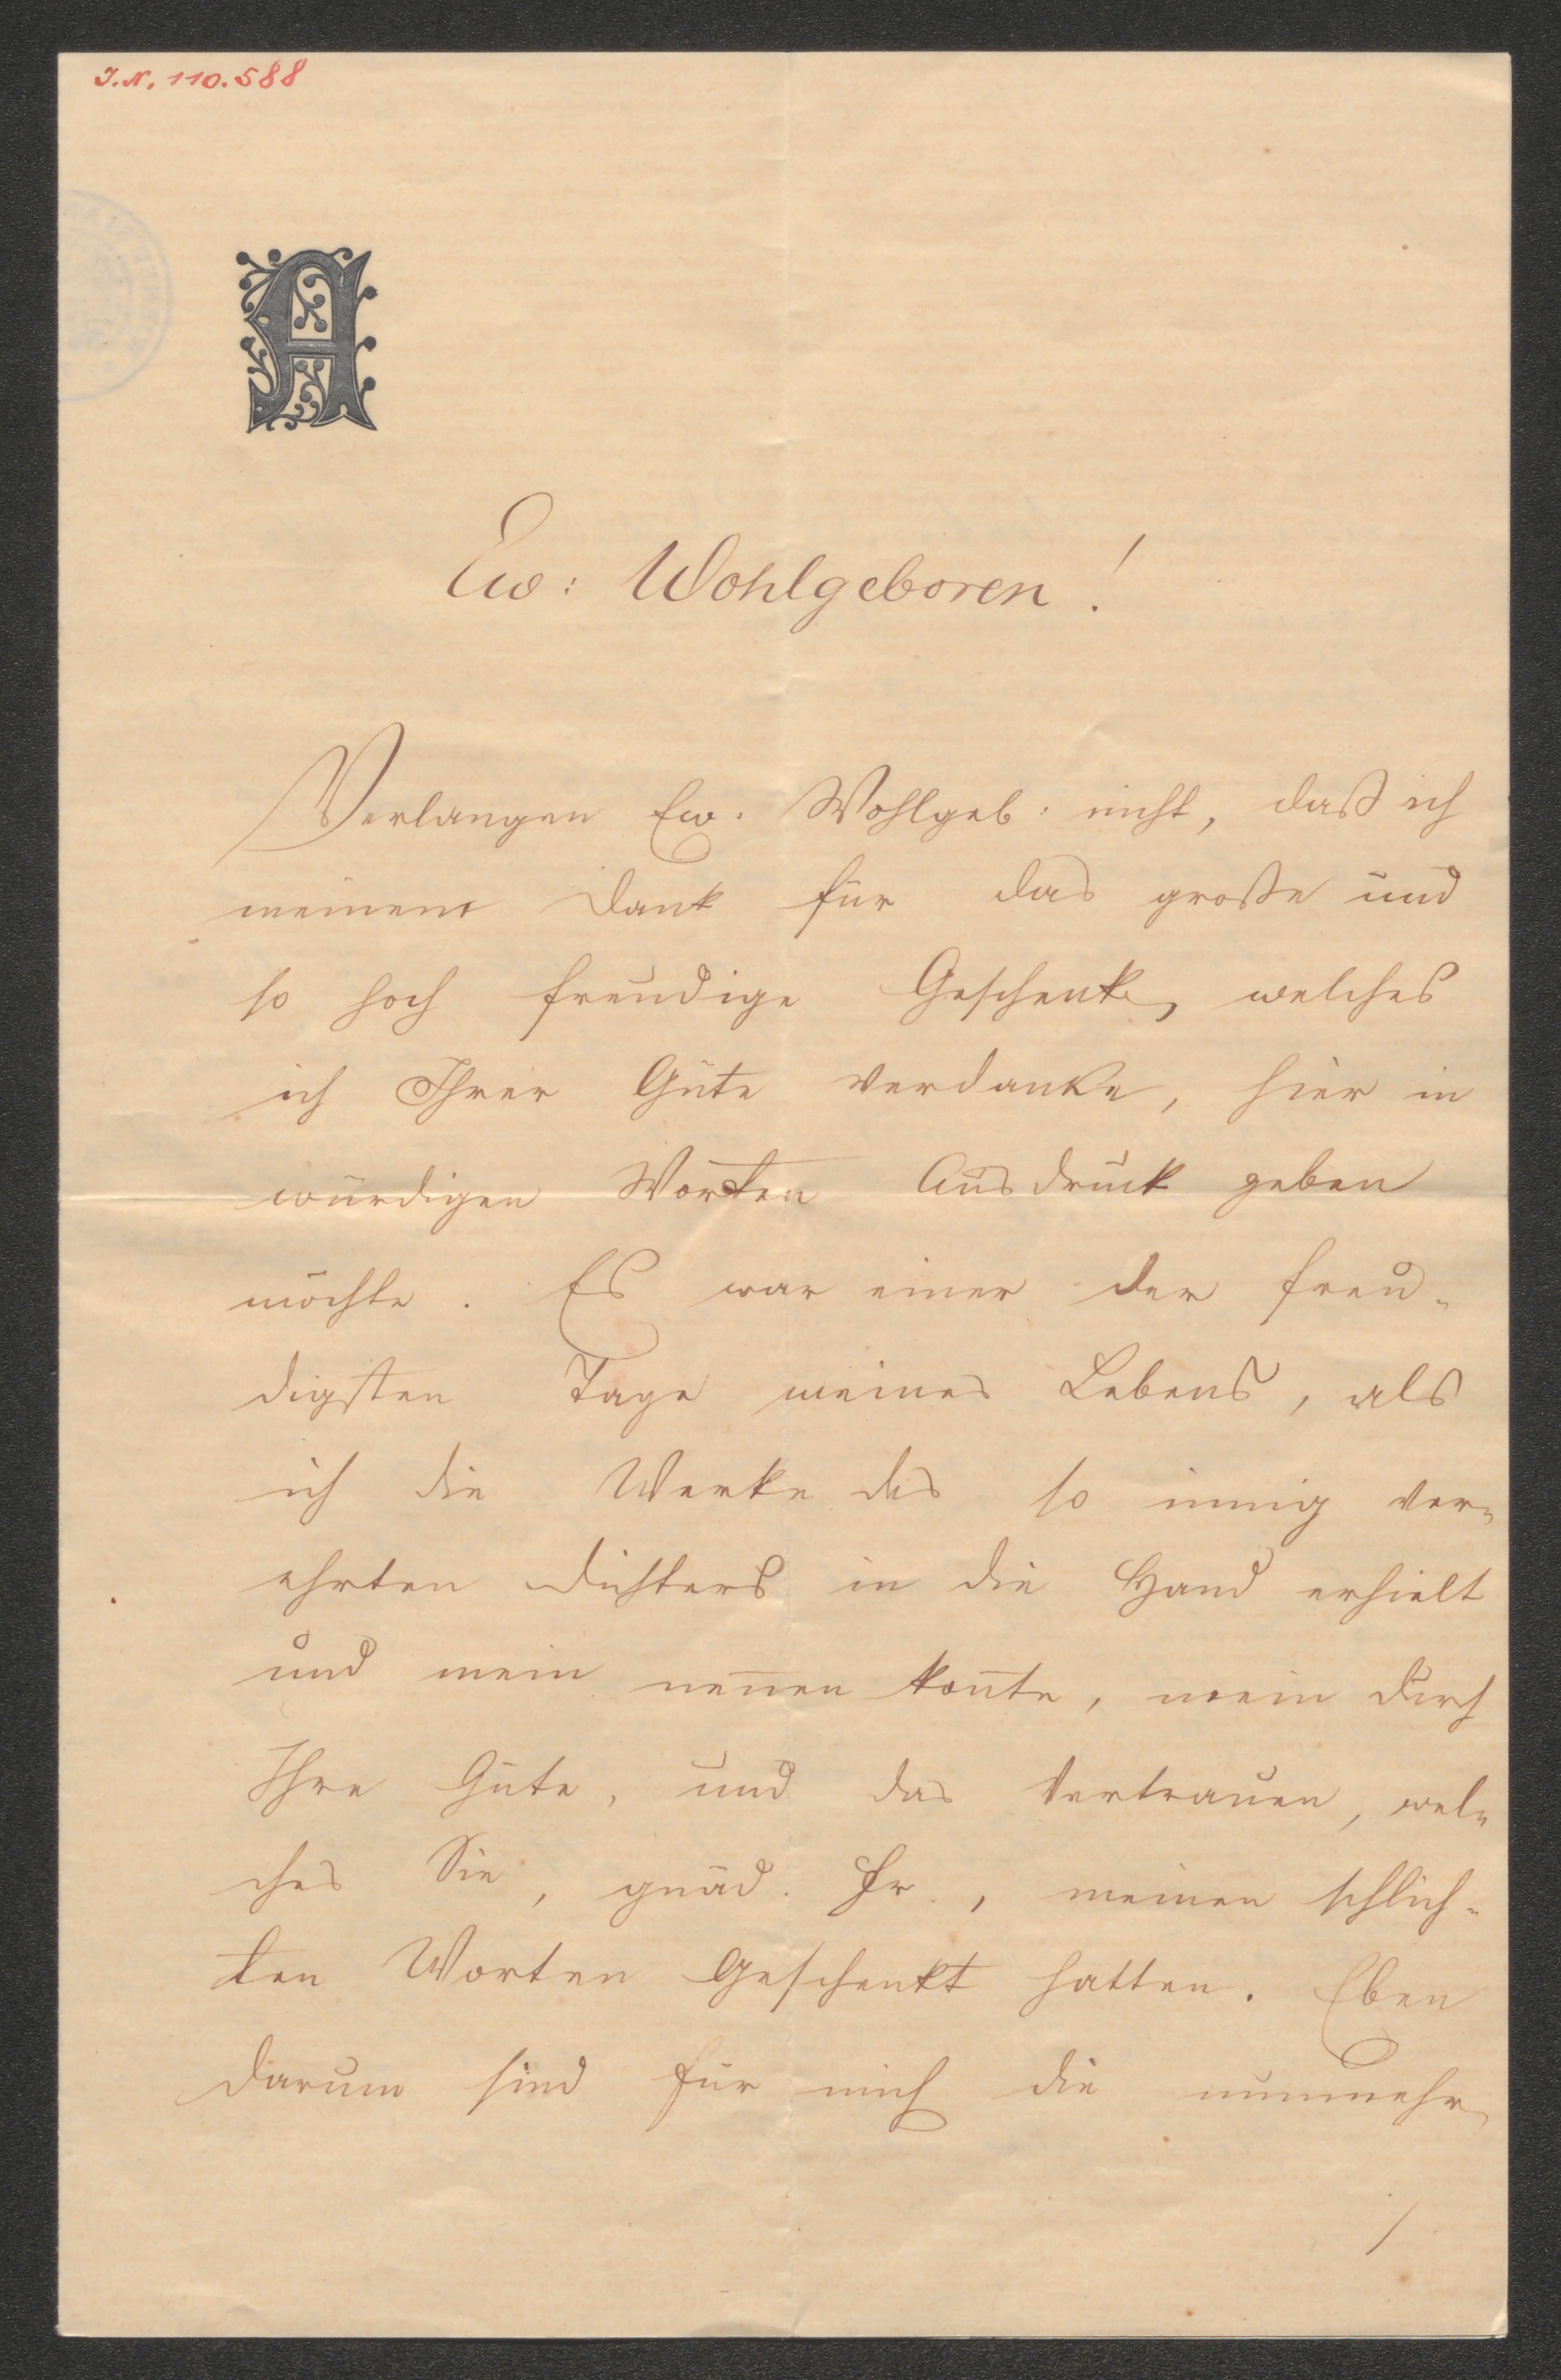 J.N. 110.588
A
Ew: Wohlgeboren!
Verlangen Ew. Wohlgeb: nicht, daß ich
meinem Dank für das große und
so hoch freudige Geschenk, welches
ich Ihrer Güte verdanke, hier in
würdigen Worten Ausdruck geben
möchte. Es war einer der freu-
digsten Tage meines Lebens, als
ich die Werke des so innig ver-
ehrten Dichters in die Hand erhielt
und mein nen̄en kon̄te, mein durch
Ihre Güte, und das Vertrauen, wel-
ches Sie, gnäd. Fr., meinen schlich-
ten Worten geschenkt hatten. Eben
darum sind für mich die nunmehr
/